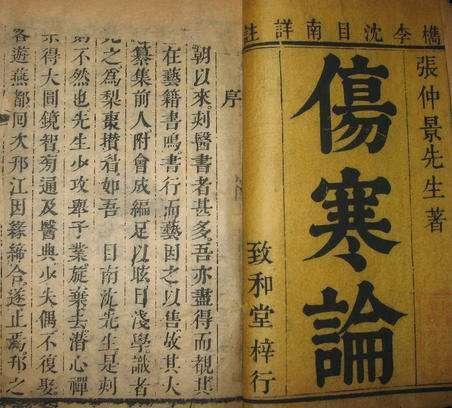 檇李沈目南詳註
張仲景先生著
傷寒論
致和堂梓行
序
朝以來刻醫書者甚多吾亦盡得而觀其
在藝籍書鳴書行而藝因之以售故其大
纂集前人附會成編足以眩日淺學識者
見之爲梨棗攢眉如吾 目南沈先生是刻
則不然也先生少攻舉子業旋棄去潛心禪
宗得大圓鏡智旁通及醫典少失偶不復娶
客遊燕都回次邗江因緣締合遂止焉邗之